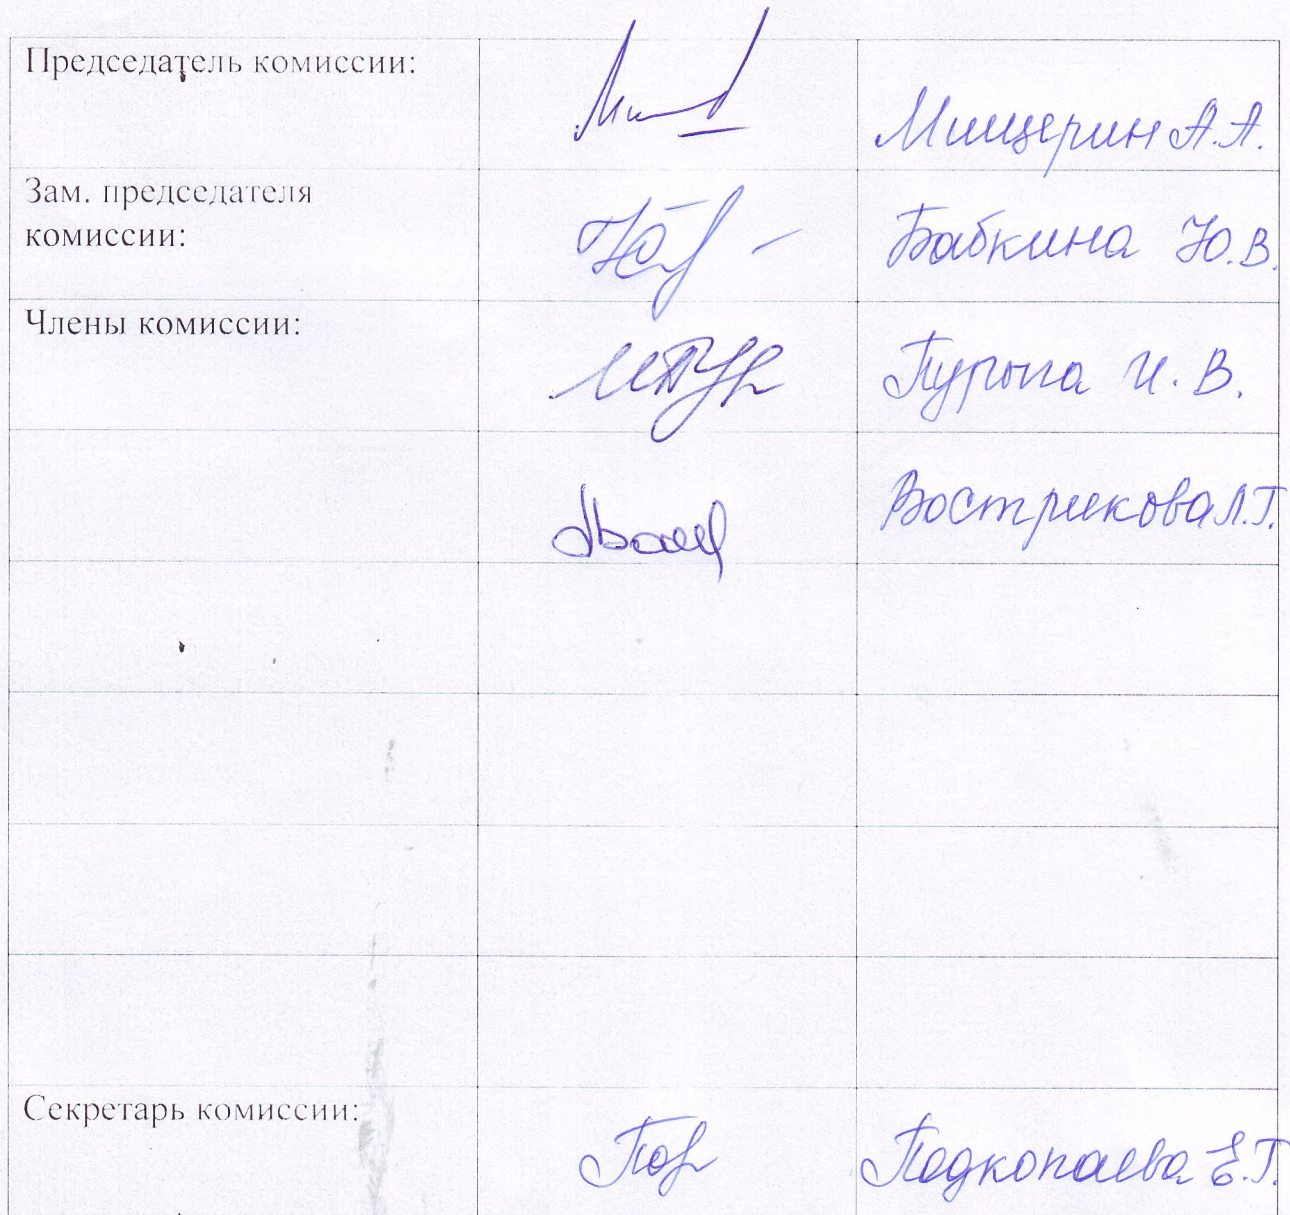 Председатель комиссии:
Мищерин А.А.
Зам. председателя
комиссии:
Бабкина Ю.В.
Члены комиссии:
Пурыга И.В.
Вострикова Л.Г.
Секретарь комиссии:
Подкопаева Е.Г.